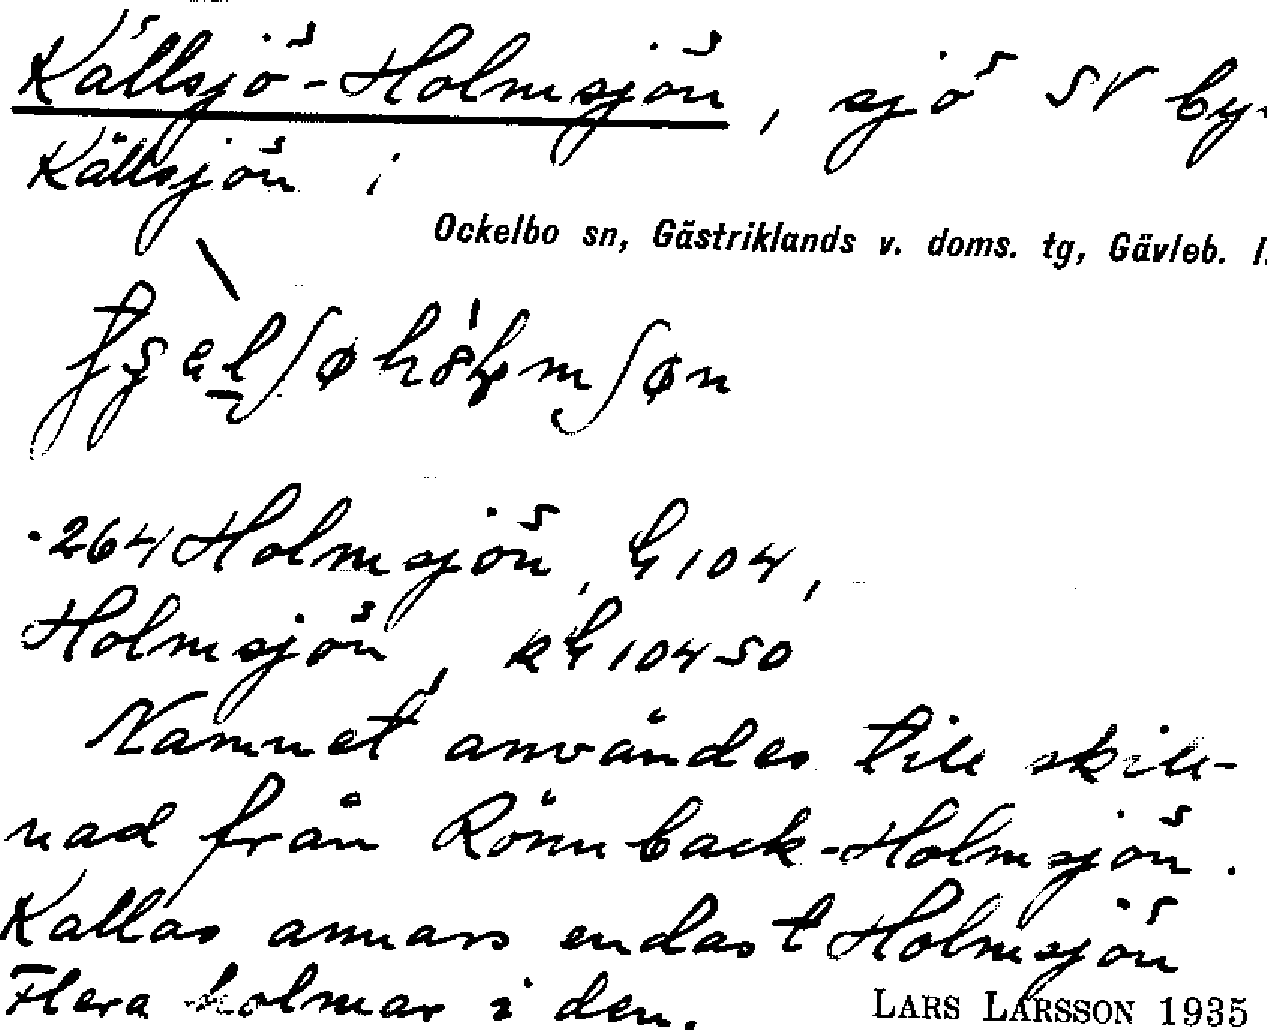 Källsjö-Holmsjön, sjö SV by-
Källsjön i
Ockelbo sn, Gästriklands v. doms. tg, Gävleb. l.
264 Holmsjön, h 104,
Holmsjön, kh 10450
Namnet användes till skill-
nad från Rönnback-Holmsjön.
Kallas annars endast Holmsjön
Flera holmar i den.
LARS LARSSON 1935